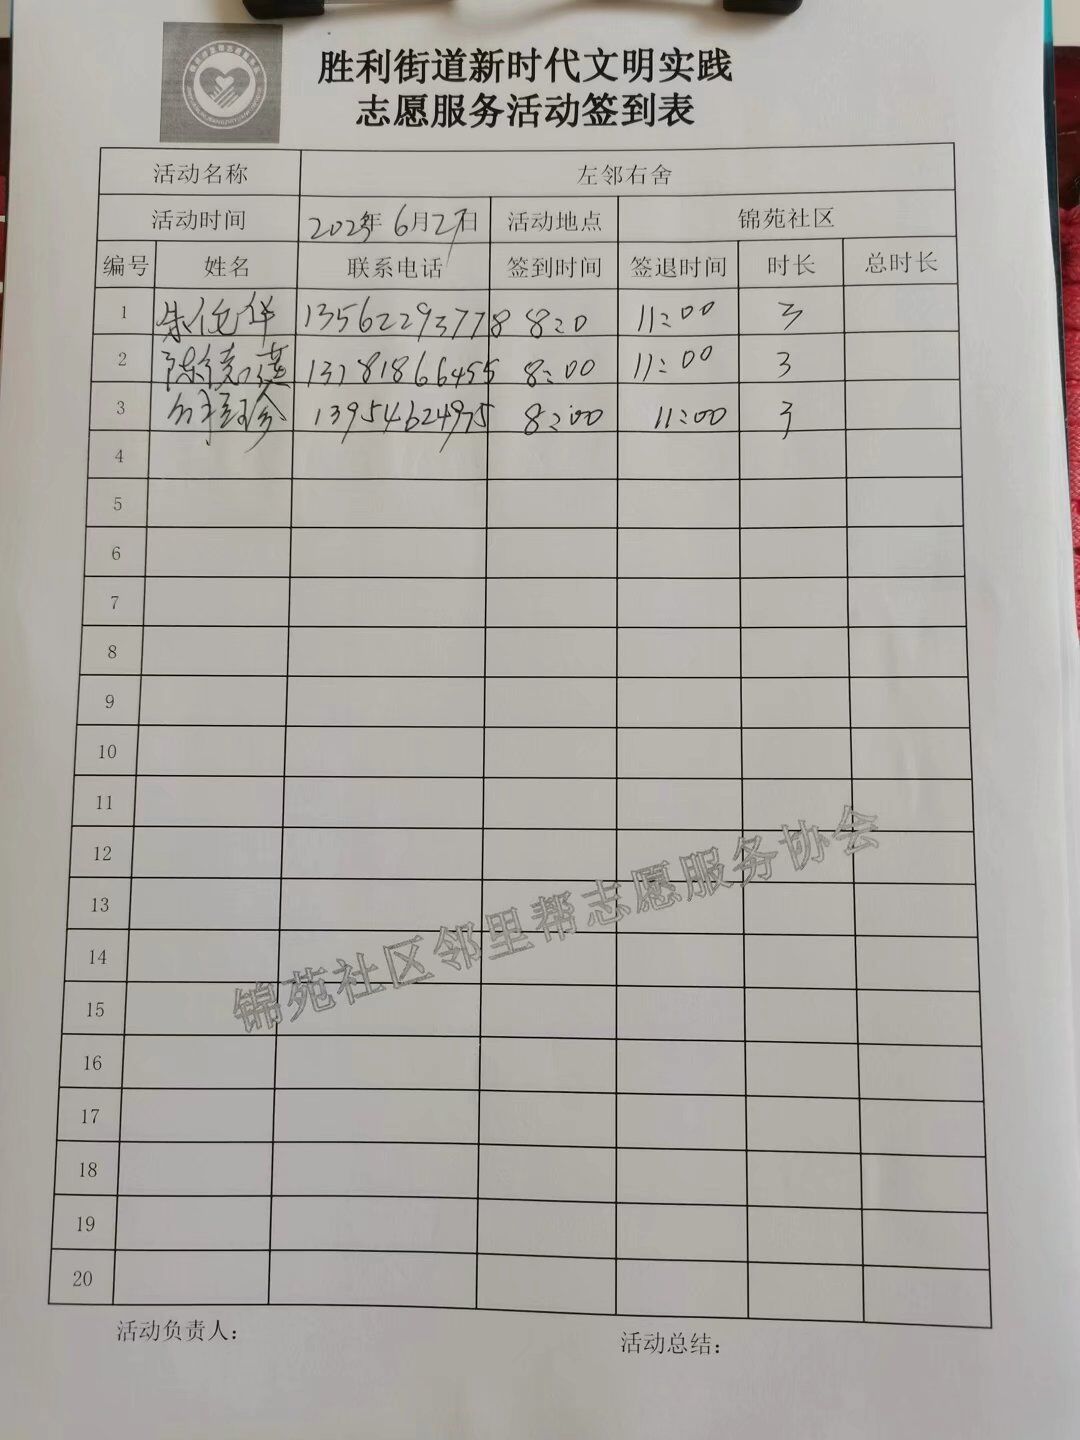 胜利街道新时代文明实践
志愿服务活动签到表
活动名称 左邻右舍
活动时间 2023年6月27日 活动地点 锦苑社区
编号 姓名 联系电话 签到时间 签退时间 时长 总时长
1 13562293778 8:0 11:00 3
2 陈 13181866455 8:00 11:00 3
3 珍 13954624975 8:00 11:00 3
4
5
6
7
8
9
10
11
12
13
14
15
16
17
18
19
20
锦苑社区邻里帮志愿服务协会
活动负责人: 活动总结: